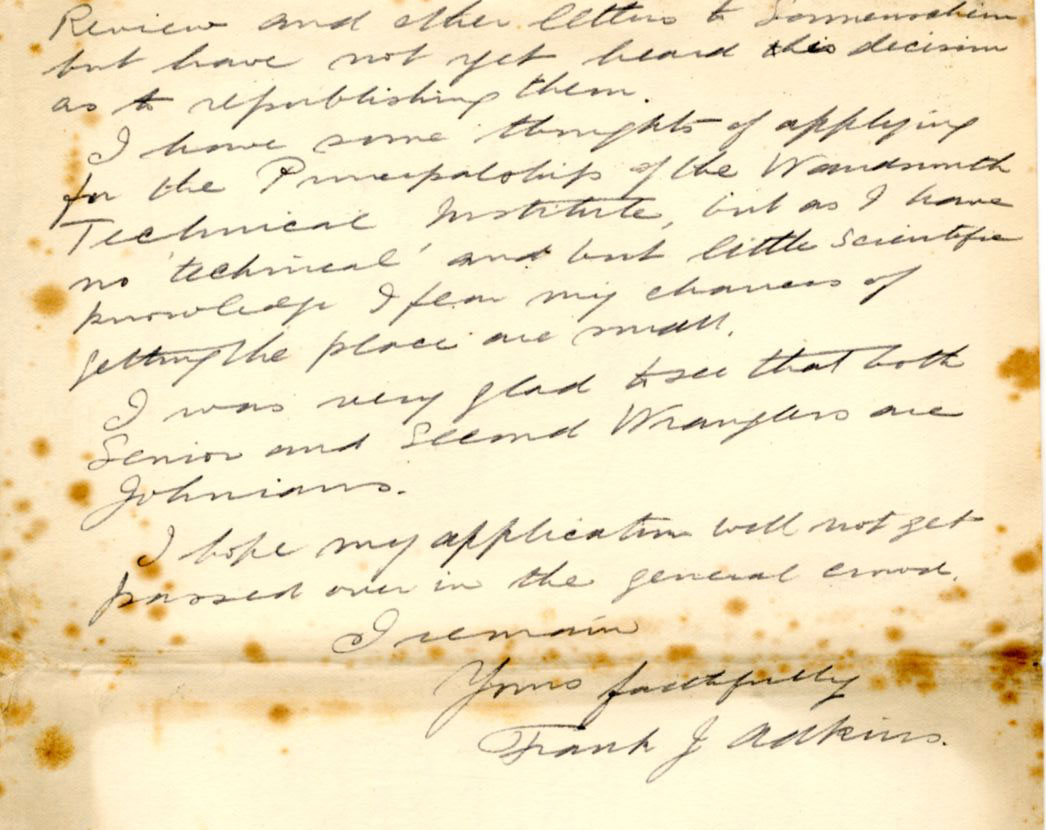 Review and other letters to Sonnenschein
but have not yet heard his decision
as to republishing them.
I have some thoughts of applying
for the Principalship of the Wandsworth
Technical Institute, but as I have
no 'technical' and but little scientific
knowledge I fear my chances of
getting the place are small.
I was very glad to see that both
Senior and Second Wranglers are
Johnians.
I hope my application will not get
passed over in the general crowd.
I remain
Yours faithfully
Frank J Adkins.